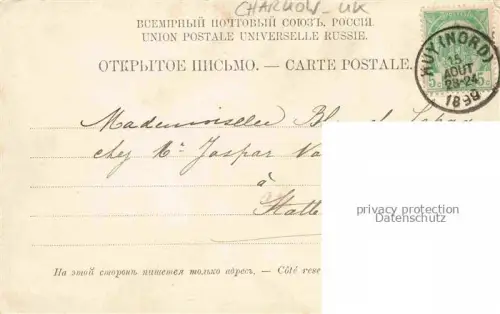 CHARKOW - UK
ВСЕМІРНЫЙ ПОЧТОВЫЙ СОЮЗЪ, РОССІЯ
UNION POSTALE UNIVERSELLE RUSSIE.
ОТКРЫТОЕ ПИСЬМО. — CARTE POSTALE.
HUY (NORD)
15
AOUT
23-24
1899
5 5
Mademoiselle
chez Mr Jaspar
à
privacy protection
Datenschutz
На этой сторонѣ пишется только адресъ. — Côté rese